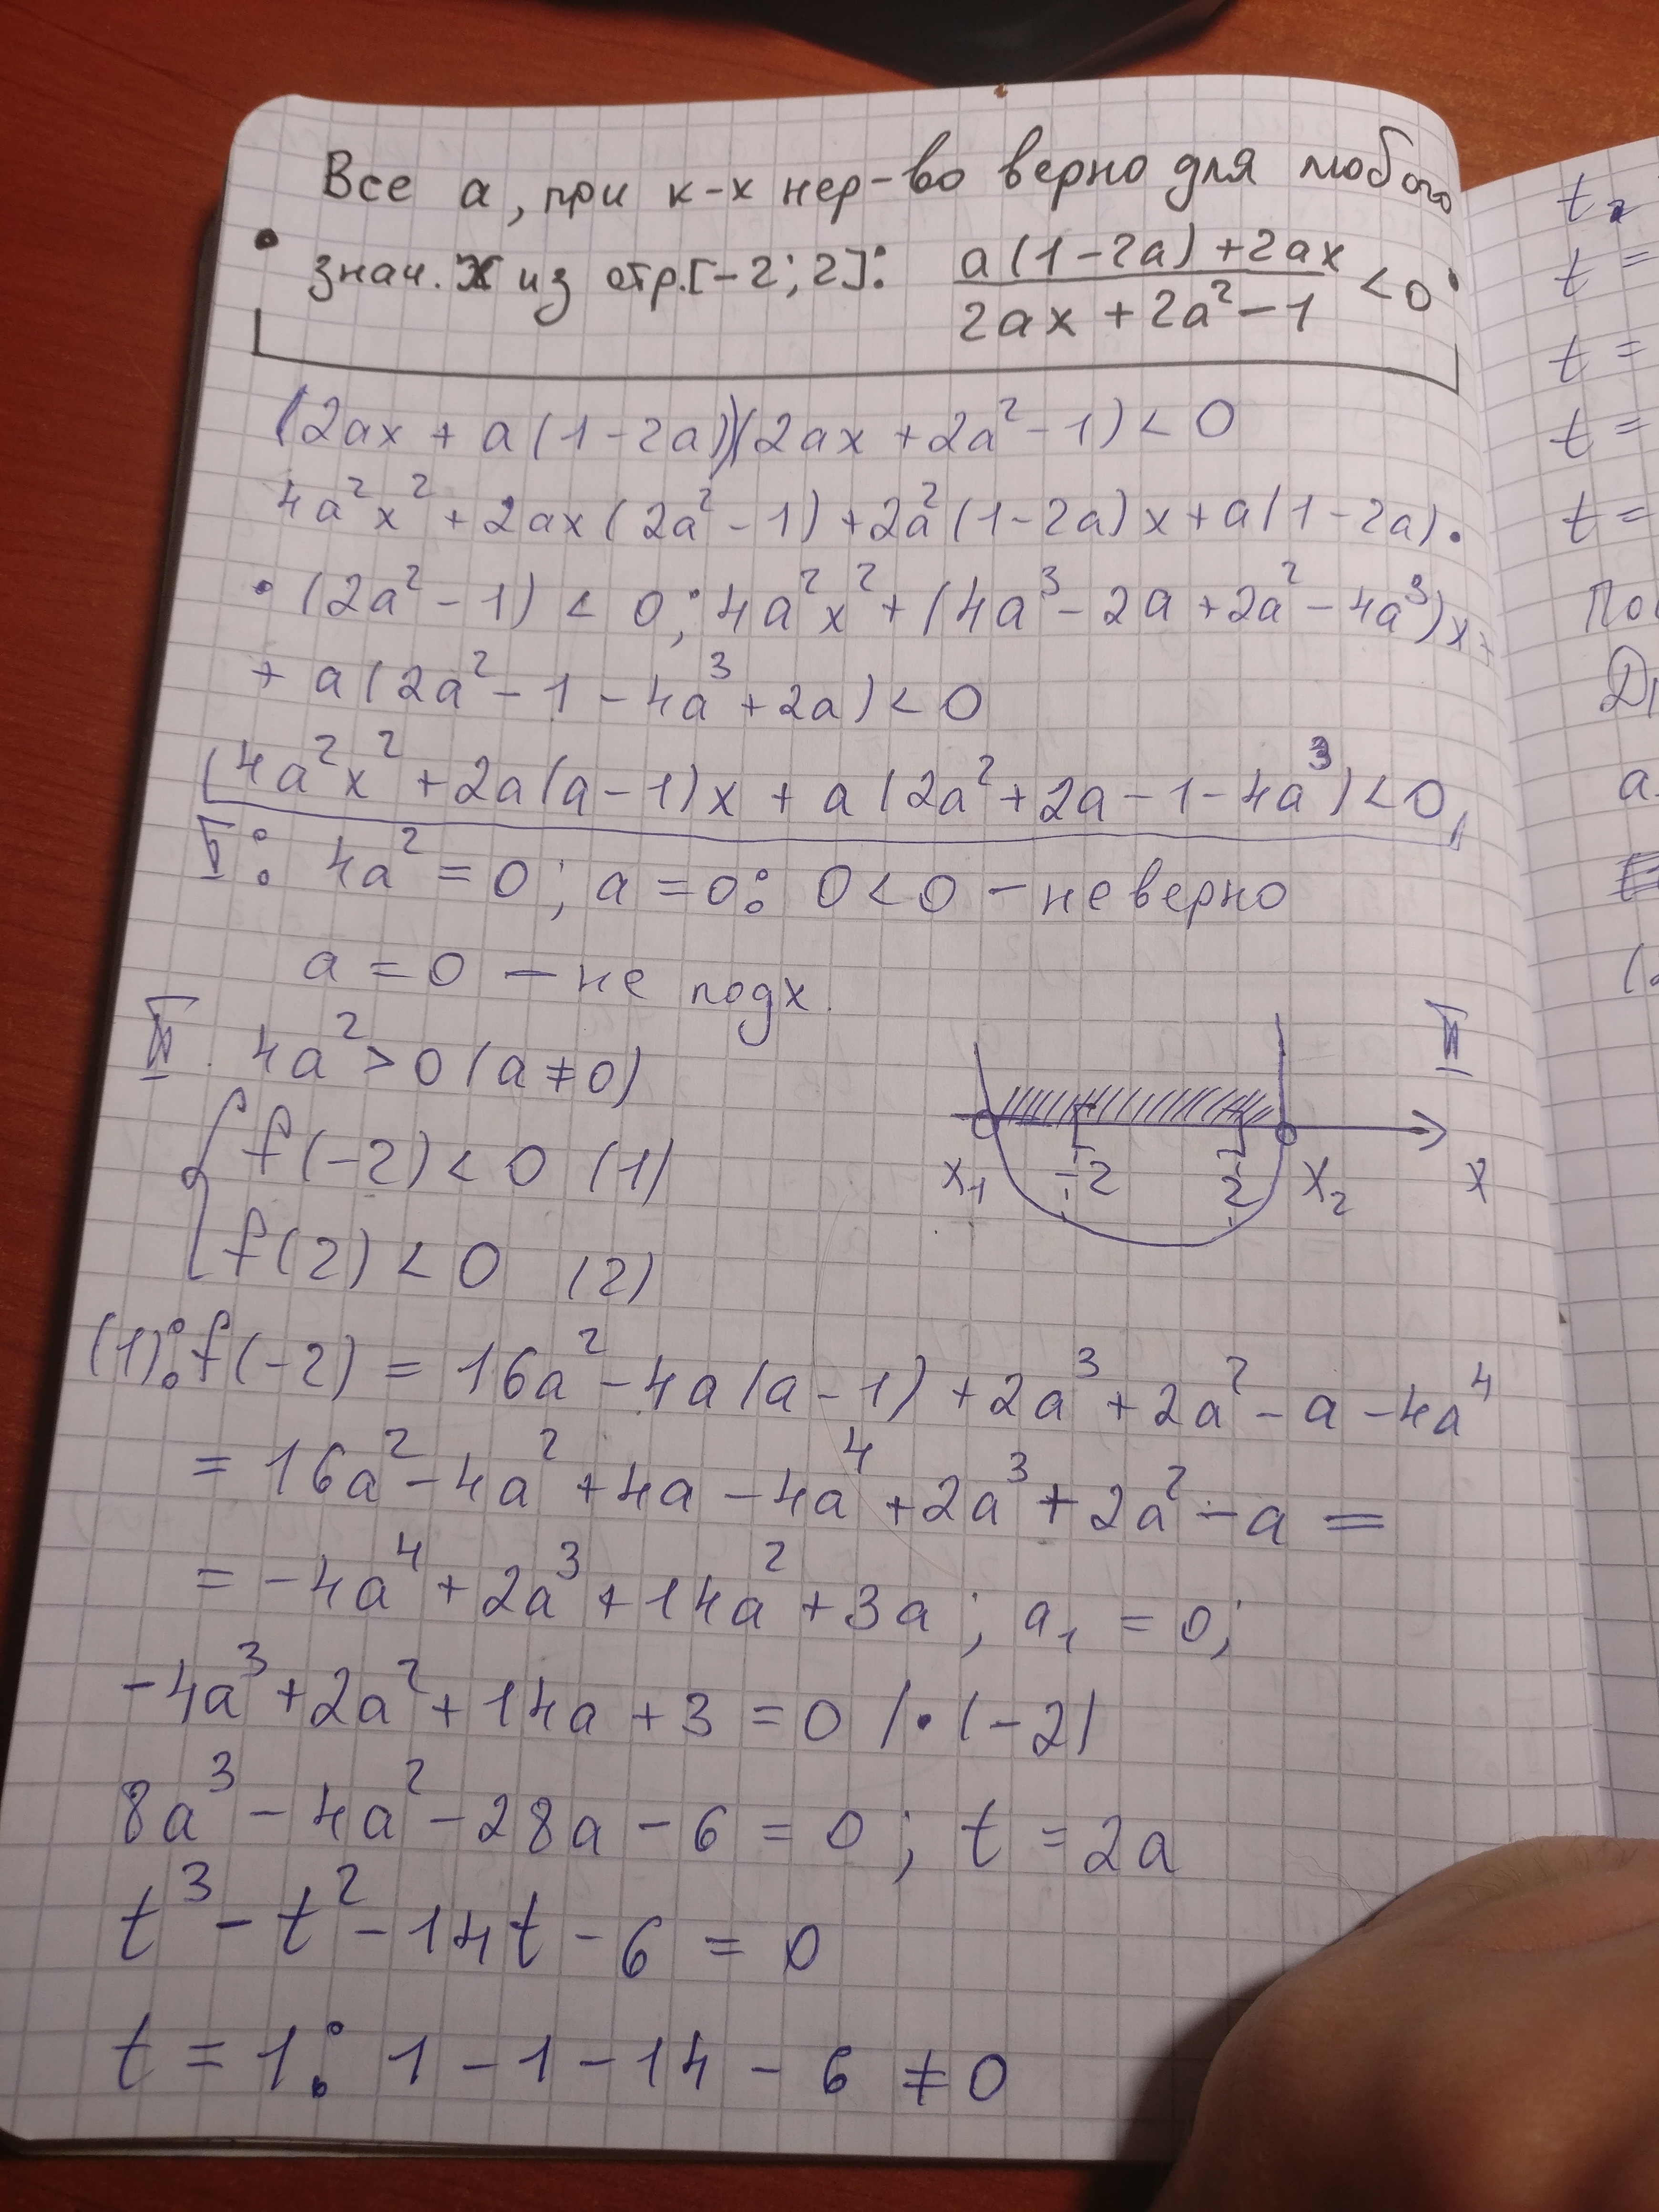 Все а, при к-х нер-во верно для любого
• знач. x из отр.[-2; 2]: a(1-2a)+2ax / 2ax+2a²-1 < 0
(2ax + a(1-2a))(2ax + 2a² - 1) < 0
4a²x² + 2ax(2a² - 1) + 2a²(1-2a)x + a(1-2a) •
• (2a² - 1) < 0; 4a²x² + (4a³ - 2a + 2a² - 4a³)x +
+ a(2a² - 1 - 4a³ + 2a) < 0
(4a²x² + 2a(a-1)x + a(2a² + 2a - 1 - 4a³) < 0
I: 4a² = 0; a = 0: 0 < 0 - неверно
a = 0 - не подх.
II. 4a² > 0 (a ≠ 0)
II
f(-2) < 0 (1)
x₁ -2 2 x₂ x
f(2) < 0 (2)
(1): f(-2) = 16a² - 4a(a-1) + 2a³ + 2a² - a - 4a⁴
= 16a² - 4a² + 4a - 4a⁴ + 2a³ + 2a² - a =
= -4a⁴ + 2a³ + 14a² + 3a; a₁ = 0;
-4a³ + 2a² + 14a + 3 = 0 | • (-2)
8a³ - 4a² - 28a - 6 = 0; t = 2a
t³ - t² - 14t - 6 = 0
t = 1: 1 - 1 - 14 - 6 ≠ 0
t₂
t =
t =
t =
t =
a